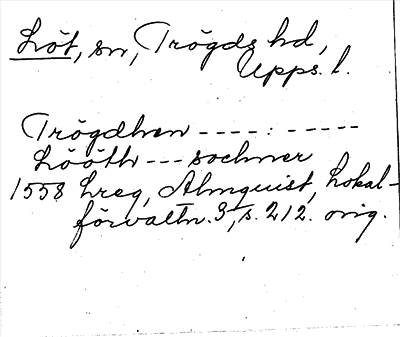 Löt, sn, Trögds hd,
Upps. l.
Trögdhen ----:-----
Lööth --- sochner
1558 Lreg, Almquist, Lokal-
förvaltn. 3, s. 212. orig.